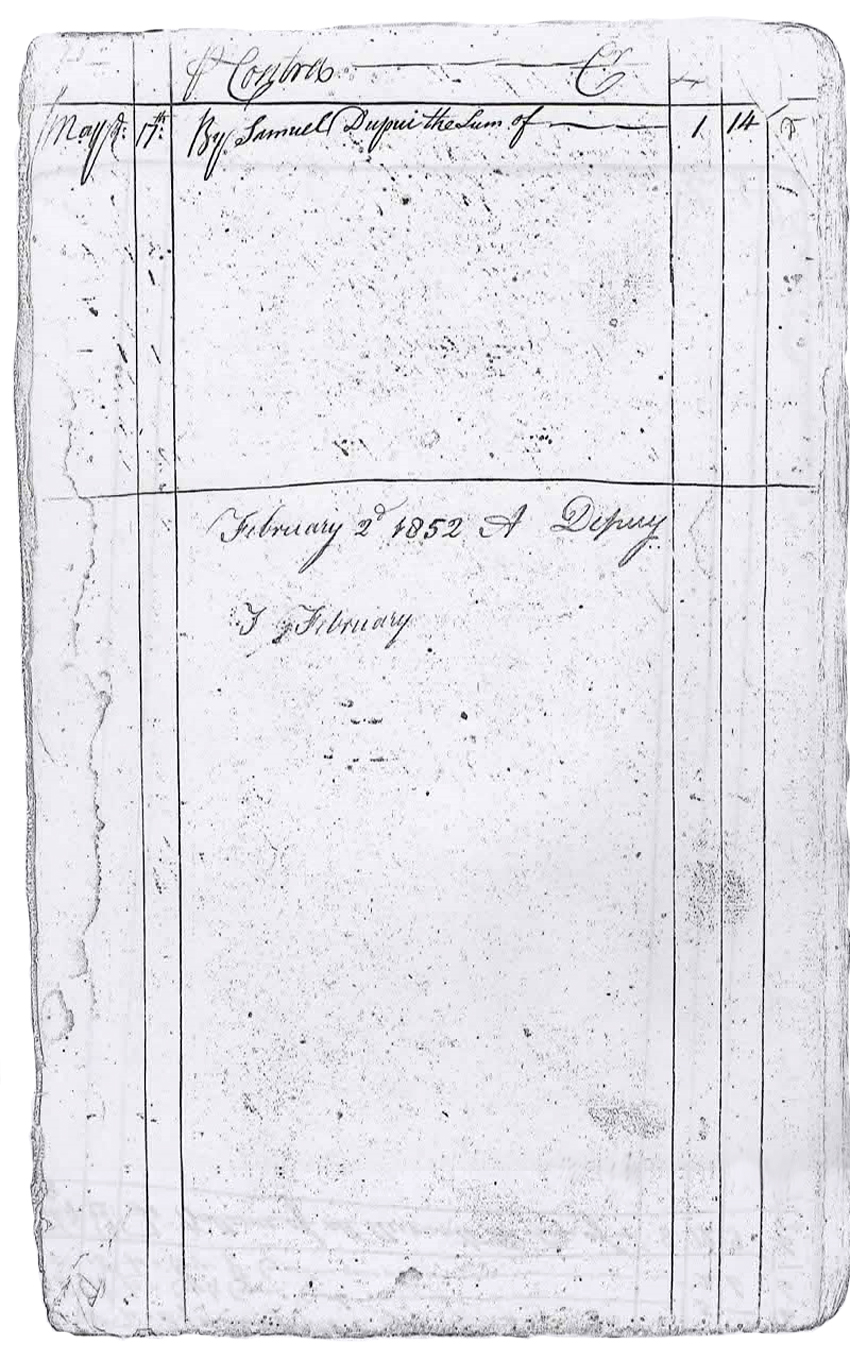 P Contra Cr
May y.e 17th: By Samuel Dupui the Sum of 1 14
February 2d 1852 A Depuy
J February